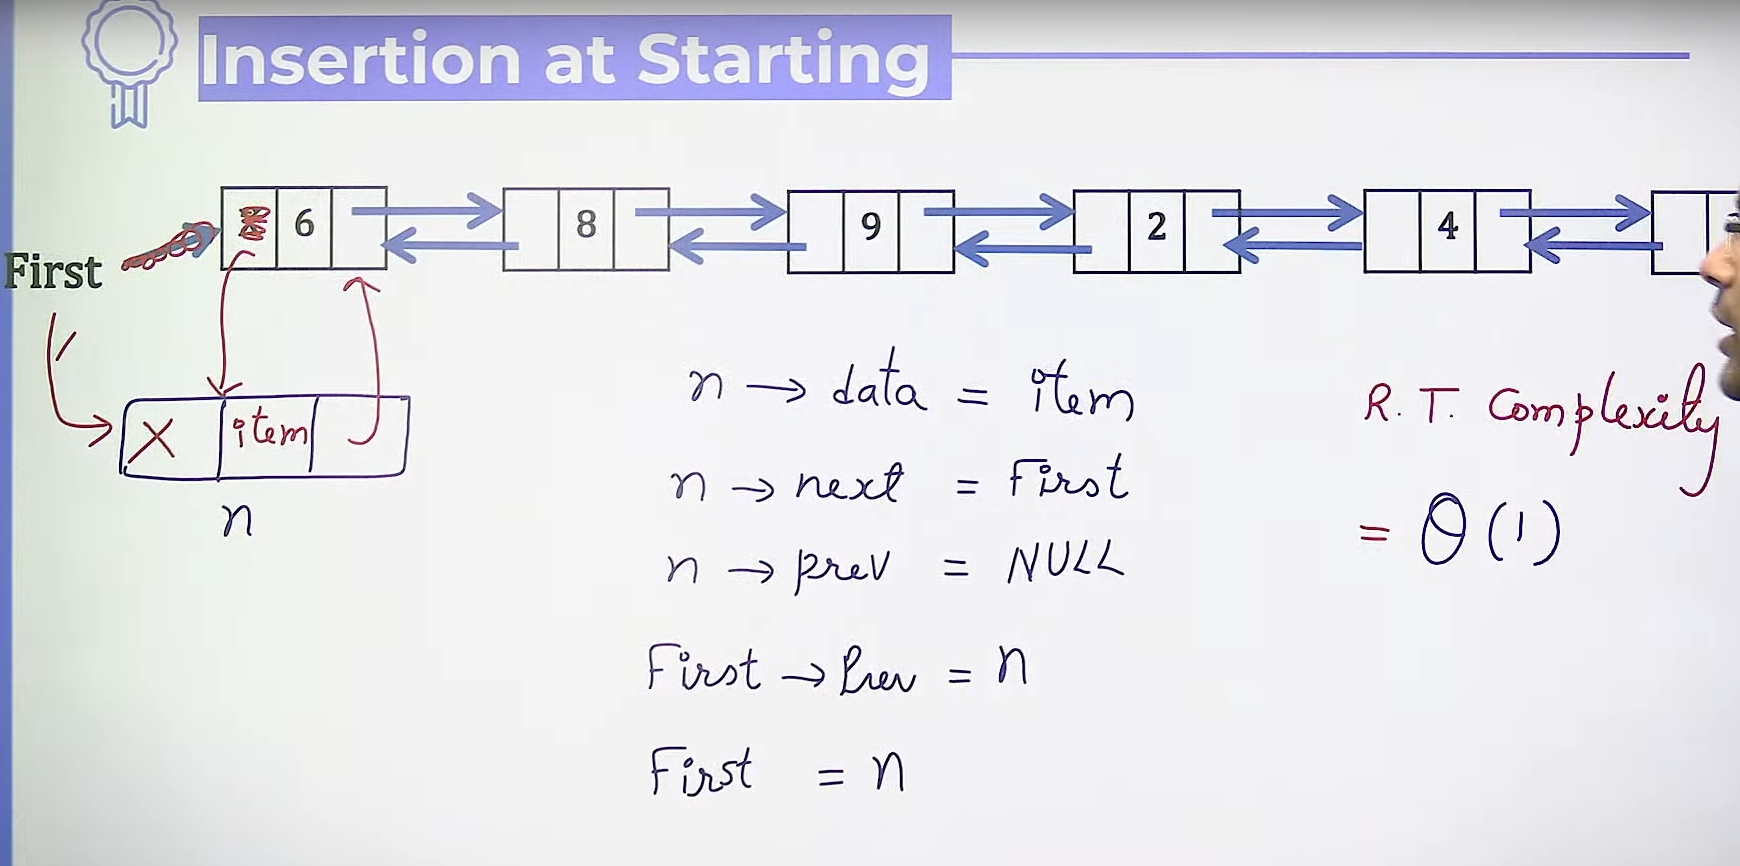 Insertion at Starting
First
6 8 9 2 4
X item
n
n → data = item
n → next = First
n → prev = NULL
First → Prev = n
First = n
R. T. Complexity
= θ(1)